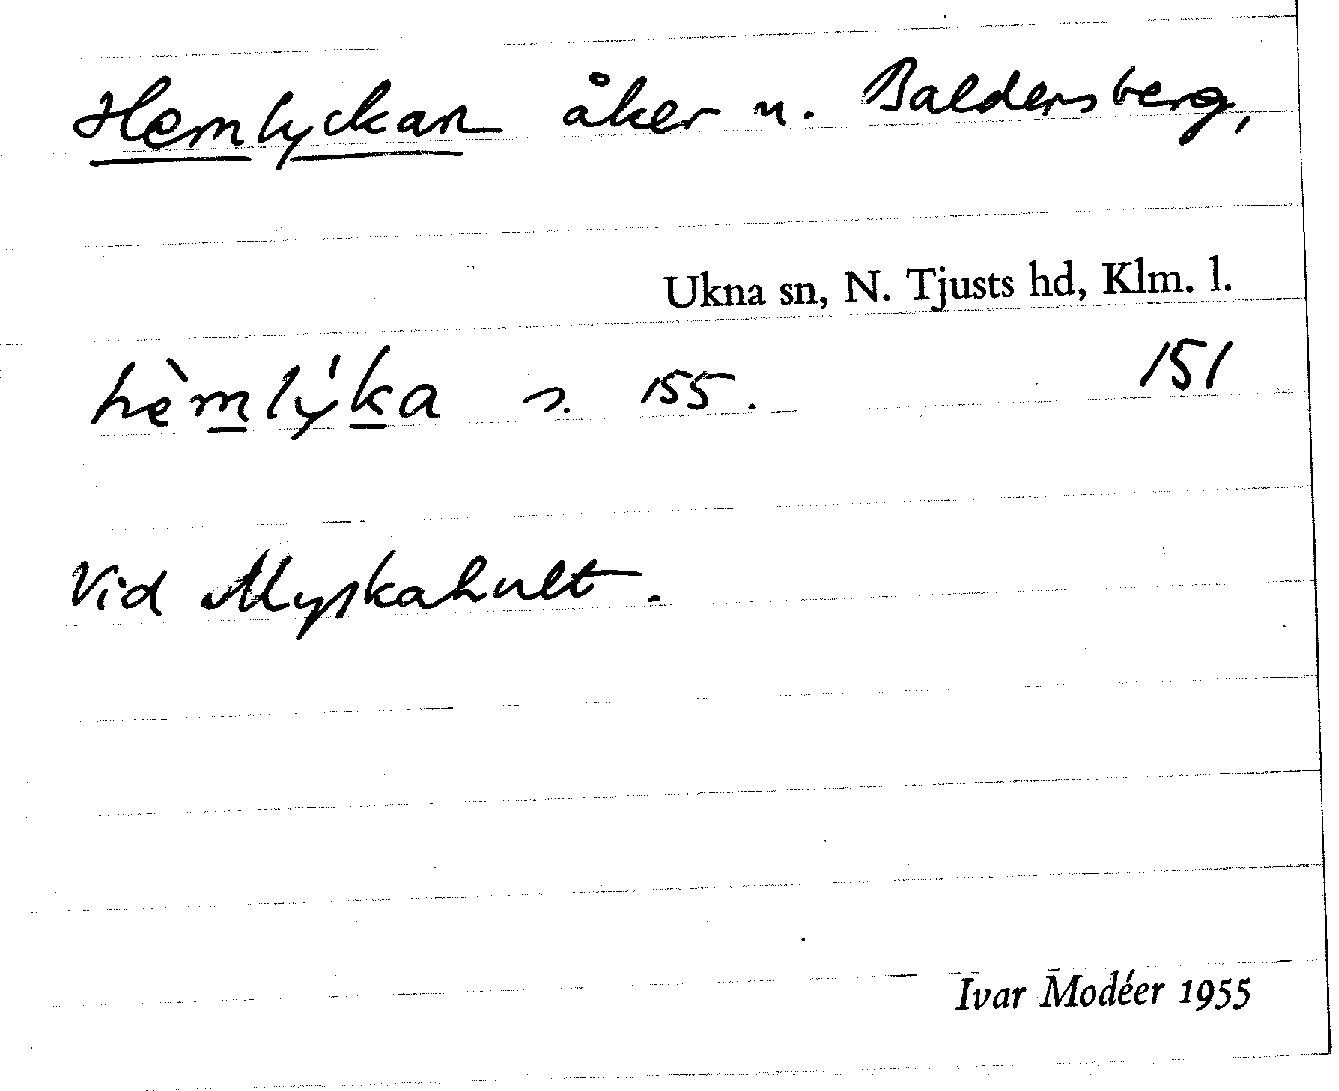 Hemlyckan åker u. Baldersberg,
Ukna sn, N. Tjusts hd, Klm. l.
hèmlýka s. 155. 151
Vid Myskahult.
Ivar Modéer 1955